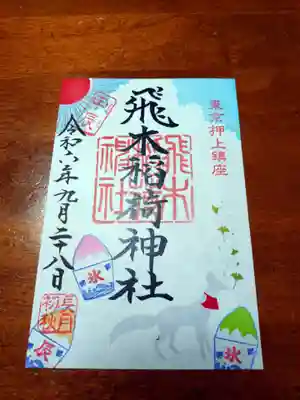 東京押上鎮座
飛木稲荷神社
飛木
稲荷
神社
令和六年九月二十八日
長月
初秋
氷
氷